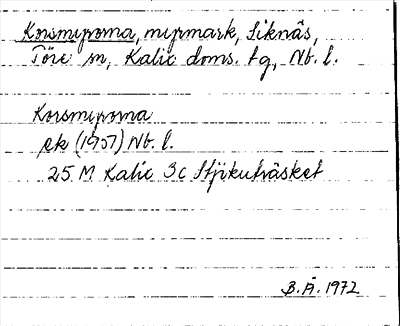 Korsmyrorna, myrmark, Siknäs,
Töre sn, Kalix doms. tg, Nb. l.
Korsmyrorna
ek (1957) Nb. l.
25 M Kalix 3c Stjikuträsket
B. Ä. 1972